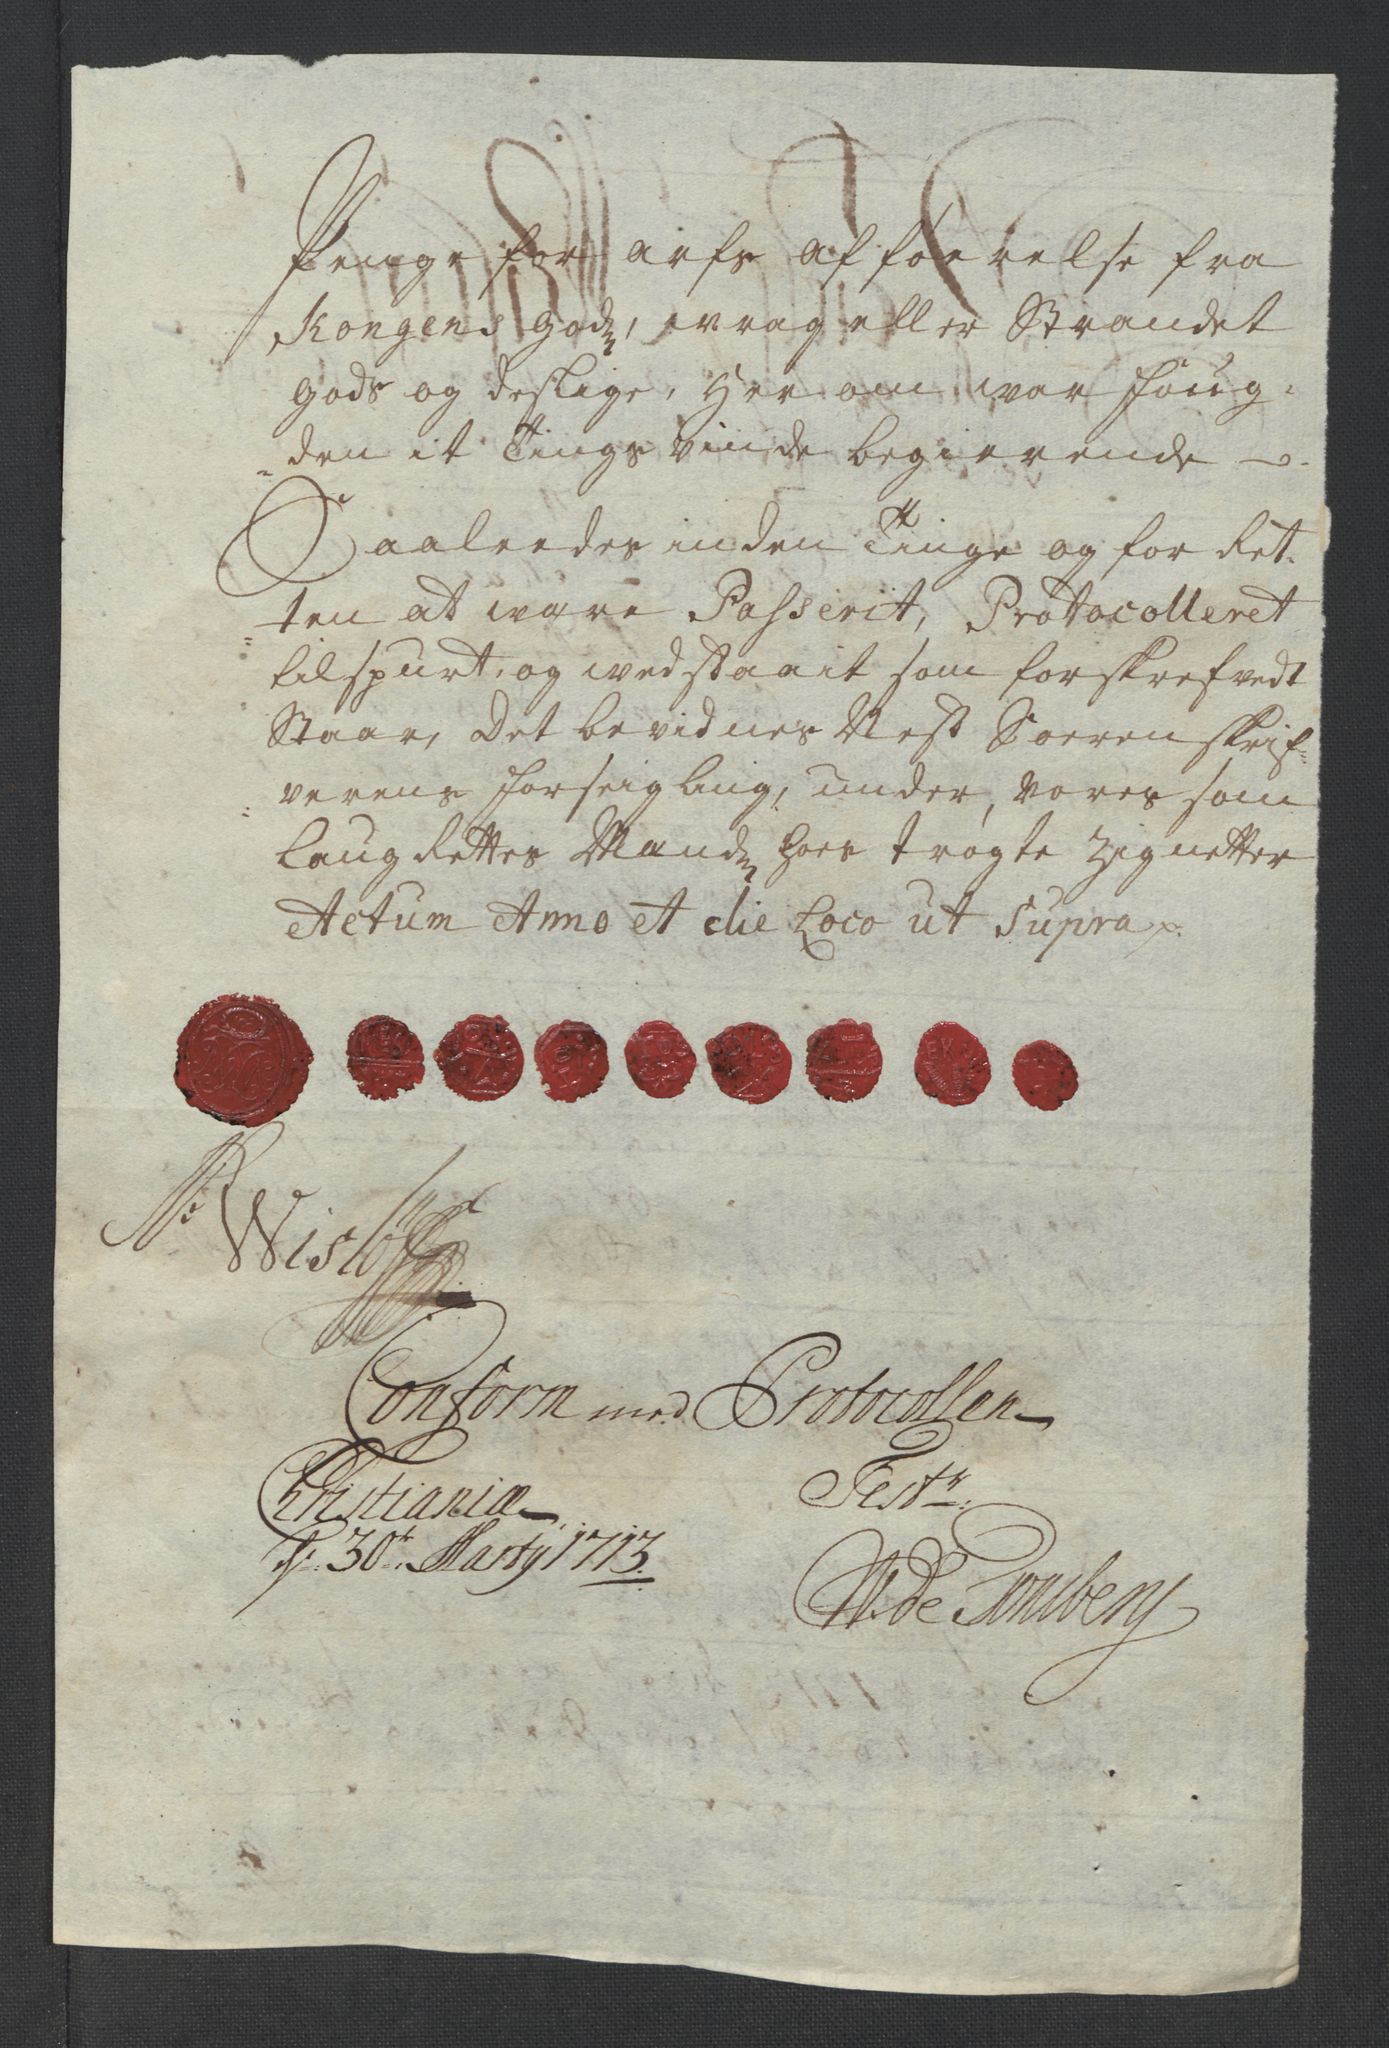 Penge for arfs affoerelse fra
Kongens Gods, wrag eller Strandet
gods og deslige, Her om war Foug-
den it Tings vinde begierende
Saaledes inden Tinge og for Ret-
ten at wære Passerit, Protocolleret
tilspurt, og wedstaait som forskrefvedt
Staar, Det bevidnes Nest Soerenskrif-
verens Forseigling, under vores som
Laug Rettes Mænd hoes trøgte Zignetter
Actum Anno et die Loco ut Supra
N: Wisløff
Conform med Protocollen
Christiania
d: 30te Marty 1713.
Test:
W. de Tonsberg